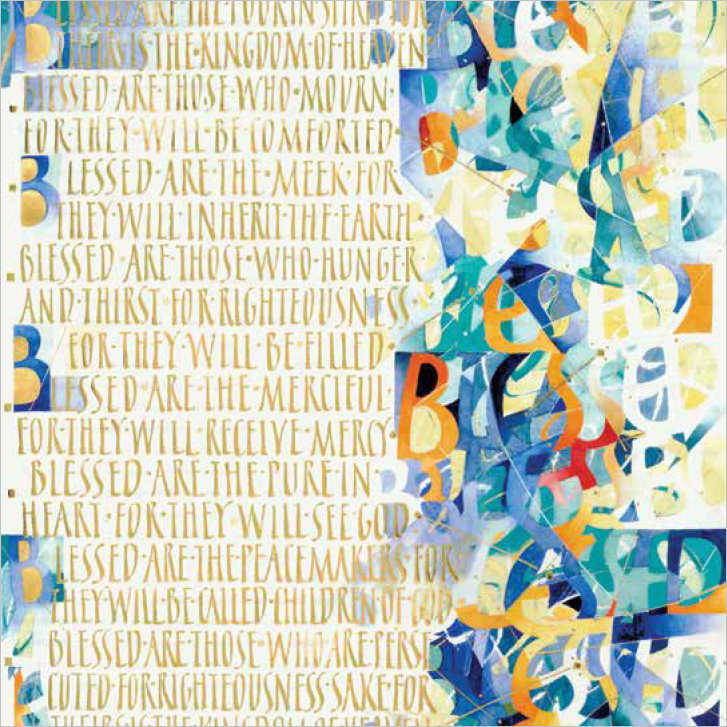 BLESSED·ARE·THE·POOR·IN·SPIRIT·FOR
THEIRS·IS·THE·KINGDOM·OF·HEAVEN
BLESSED·ARE·THOSE·WHO·MOURN·
FOR·THEY·WILL·BE·COMFORTED·
BLESSED·ARE·THE·MEEK·FOR
THEY·WILL·INHERIT·THE·EARTH
BLESSED·ARE·THOSE·WHO·HUNGER
AND·THIRST·FOR·RIGHTEOUSNESS·
FOR·THEY·WILL·BE·FILLED
BLESSED·ARE·THE·MERCIFUL·
FOR·THEY·WILL·RECEIVE·MERCY·
BLESSED·ARE·THE·PURE·IN·
HEART·FOR·THEY·WILL·SEE·GOD·
BLESSED·ARE·THE·PEACEMAKERS·FOR
THEY·WILL·BE·CALLED·CHILDREN·OF·GOD
BLESSED·ARE·THOSE·WHO·ARE·PERSE
CUTED·FOR·RIGHTEOUSNESS·SAKE·FOR
THEIRS·IS·THE·KINGDOM·OF·HEAVEN